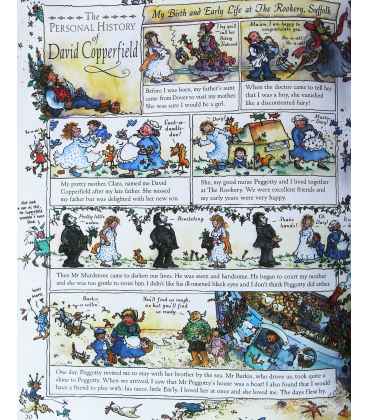 The
PERSONAL HISTORY
of
David Copperfield
My Birth and Early Life at The Rookery, Suffolk
Before I was born, my father's aunt
came from Dover to visit my mother.
She was sure I would be a girl.
When the doctor came to tell her
that I was a boy, she vanished
like a discontented fairy!
My pretty mother, Clara, named me David
Copperfield after my late father. She missed
my father but was delighted with her new son.
She, my good nurse Peggotty and I lived together
at The Rookery. We were excellent friends and
my early years were very happy.
Pretty little
Bewitching
Shake
hands!
Then Mr Murdstone came to darken our lives. He was stern and handsome. He began to court my mother
and she was too gentle to resist him. I didn't like his ill-omened black eyes and I don't think Peggotty did either.
Barkis
is willin'
You'll find us rough,
but you'll find
us ready
One day, Peggotty invited me to stay with her brother by the sea. Mr Barkis, who drove us, took quite a
shine to Peggotty. When we arrived, I saw that Mr Peggotty's house was a boat! I also found that I would
have a friend to play with: his niece, little Em'ly. I loved her at once and she loved me. The days flew by.
20